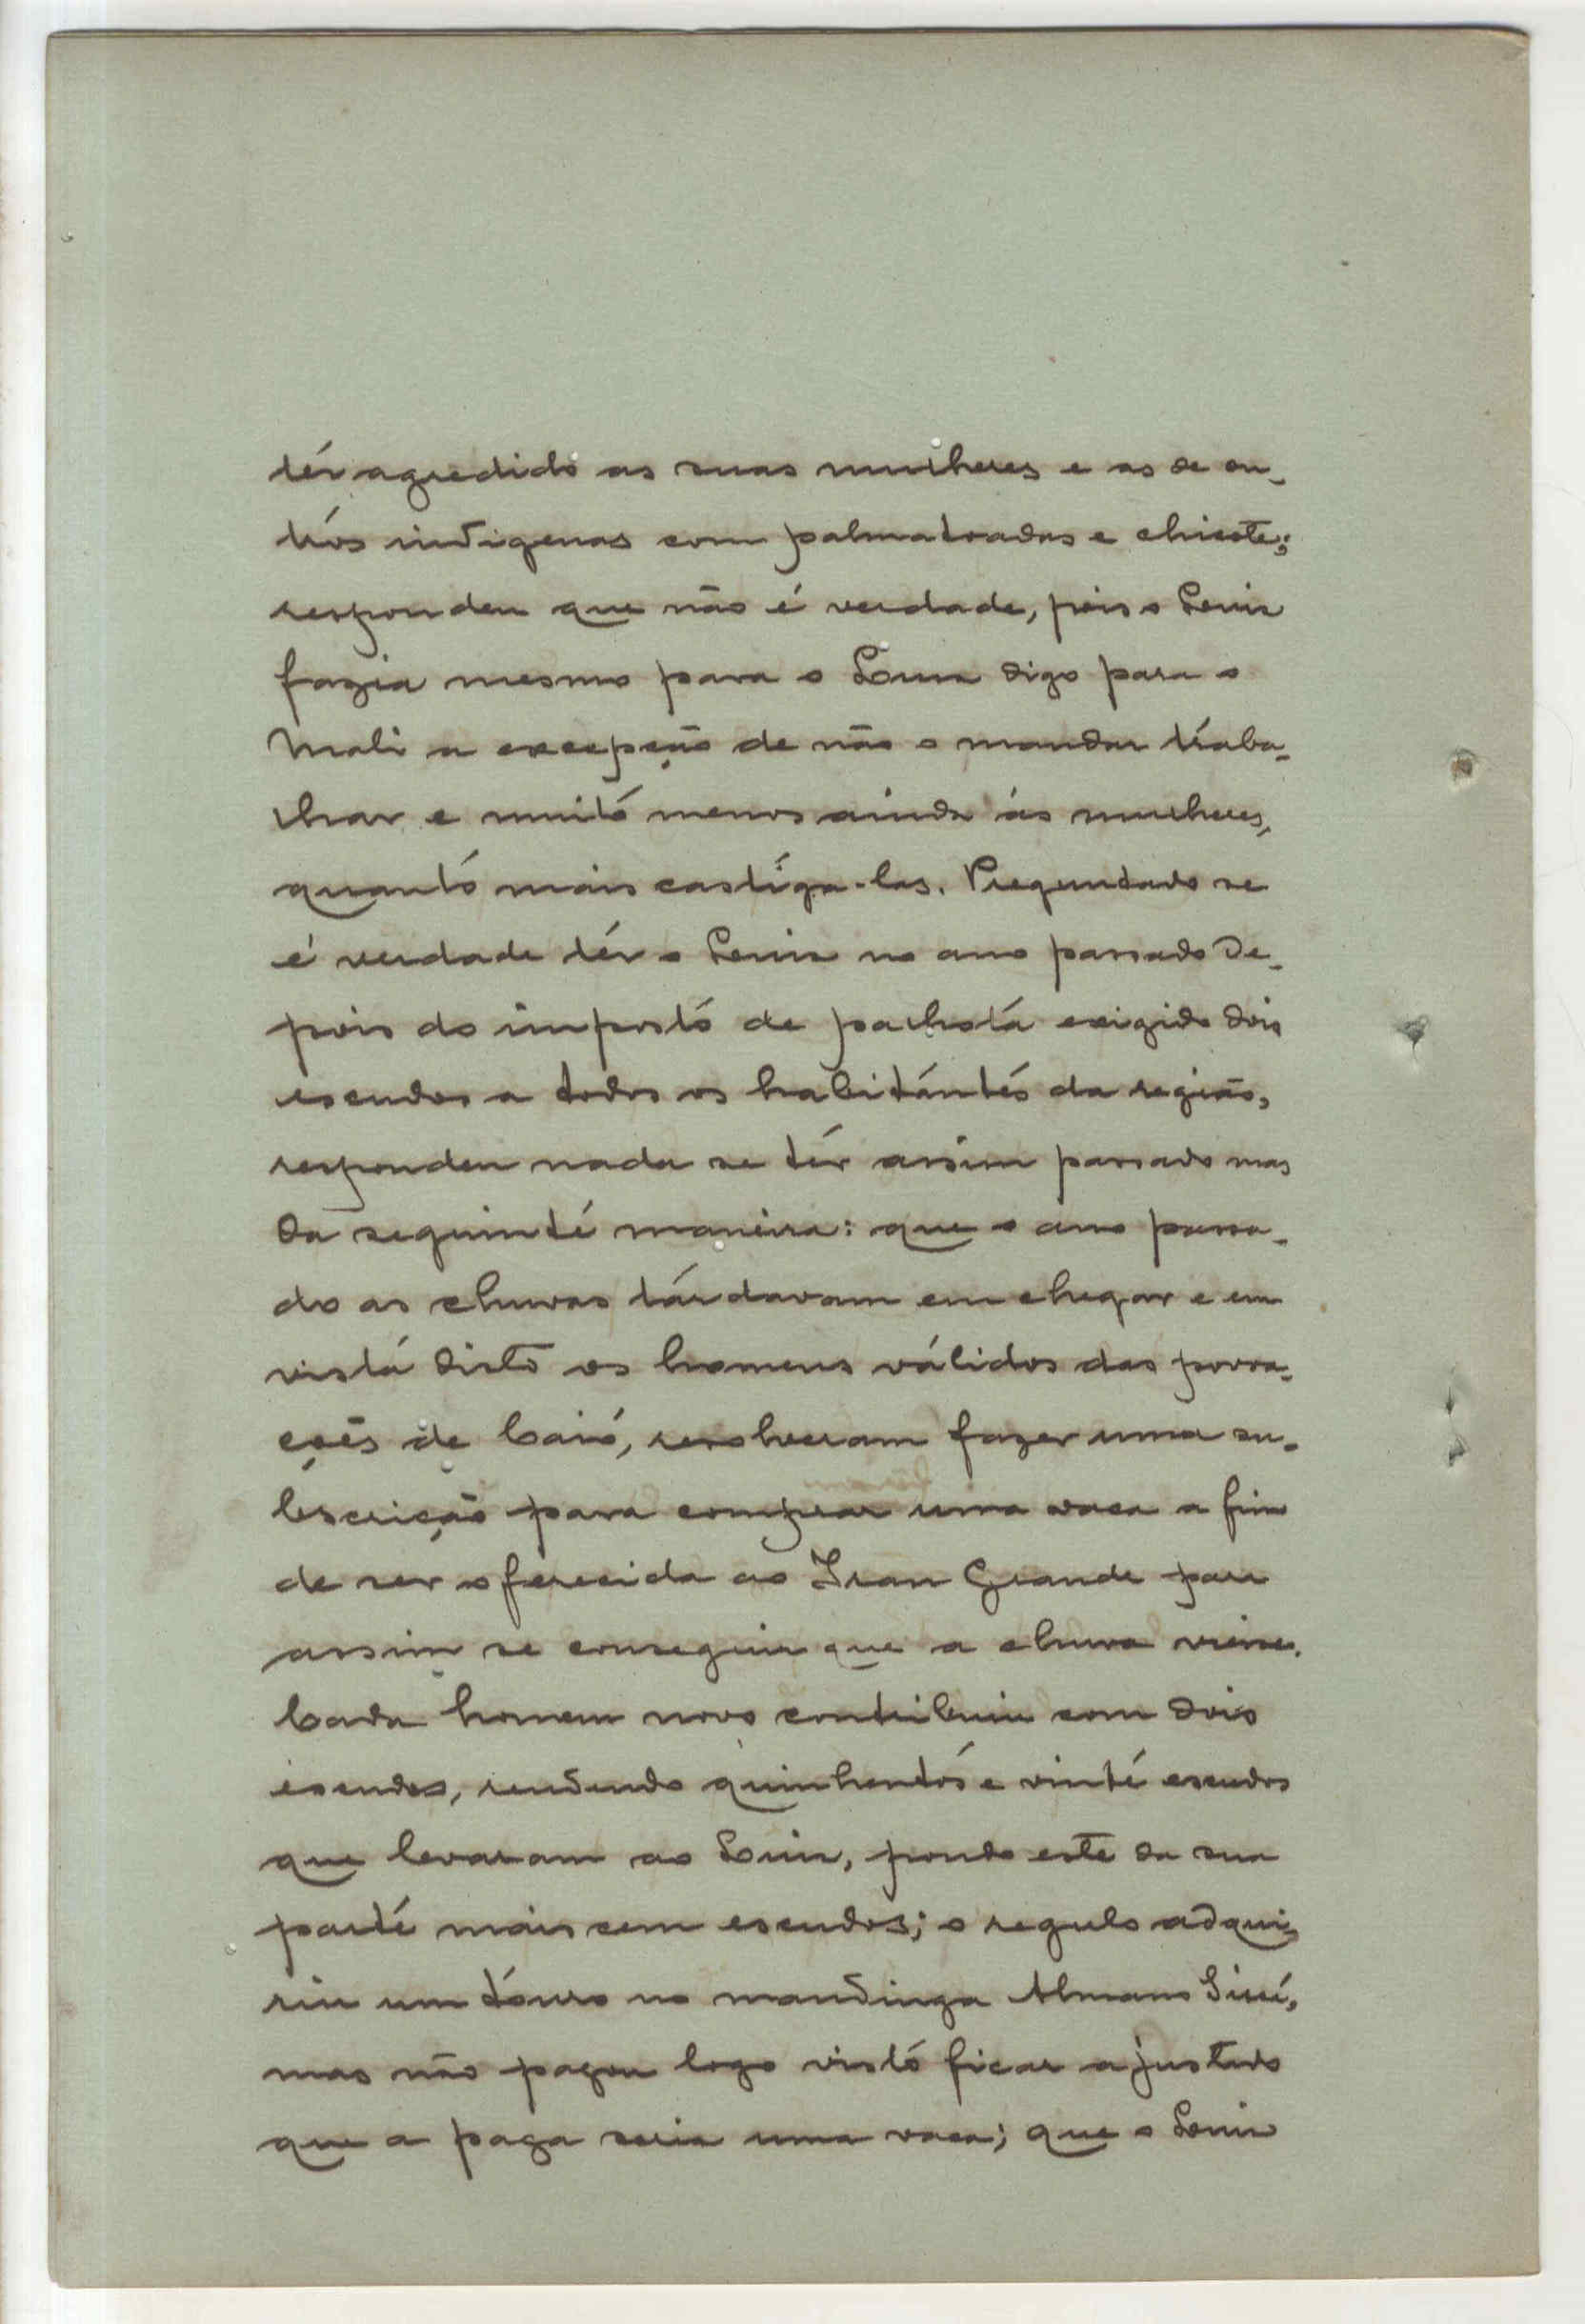 tér agredido as suas mulheres e as de ou-
tros indigenas com palmatoadas e chicote;
respondeu que não é verdade, pois o Louis
fazia mesmo para o Luis digo para o
Mali a excepção de não o mandar traba-
lhar e muito menos ainda ás mulheres,
quanto mais castiga-las. Preguntado se
é verdade tér o Louis no ano passado de-
pois do imposto de palhota exigido dois
escudos a todos os habitantes da região,
respondeu nada se tér assim passado mas
da seguinte maneira: que o ano passa-
do as chuvas tardavam em chegar e em
vista disto os homens válidos das povoa-
ções de Caió, resolveram fazer uma su-
bscrição para comprar uma vaca a fim
de ser oferecida ao Iran Grande para
assim se conseguir que a chuva viesse.
Cada homem novo contribuiu com dois
escudos, rendendo quinhentos e vinte escudos
que levaram ao Luis, pondo este da sua
parte mais cem escudos; o regulo adqui-
riu um touro no mandinga Almamo Sissé,
mas não pagou logo visto ficar ajustado
que a paga seria uma vaca; que o Louis